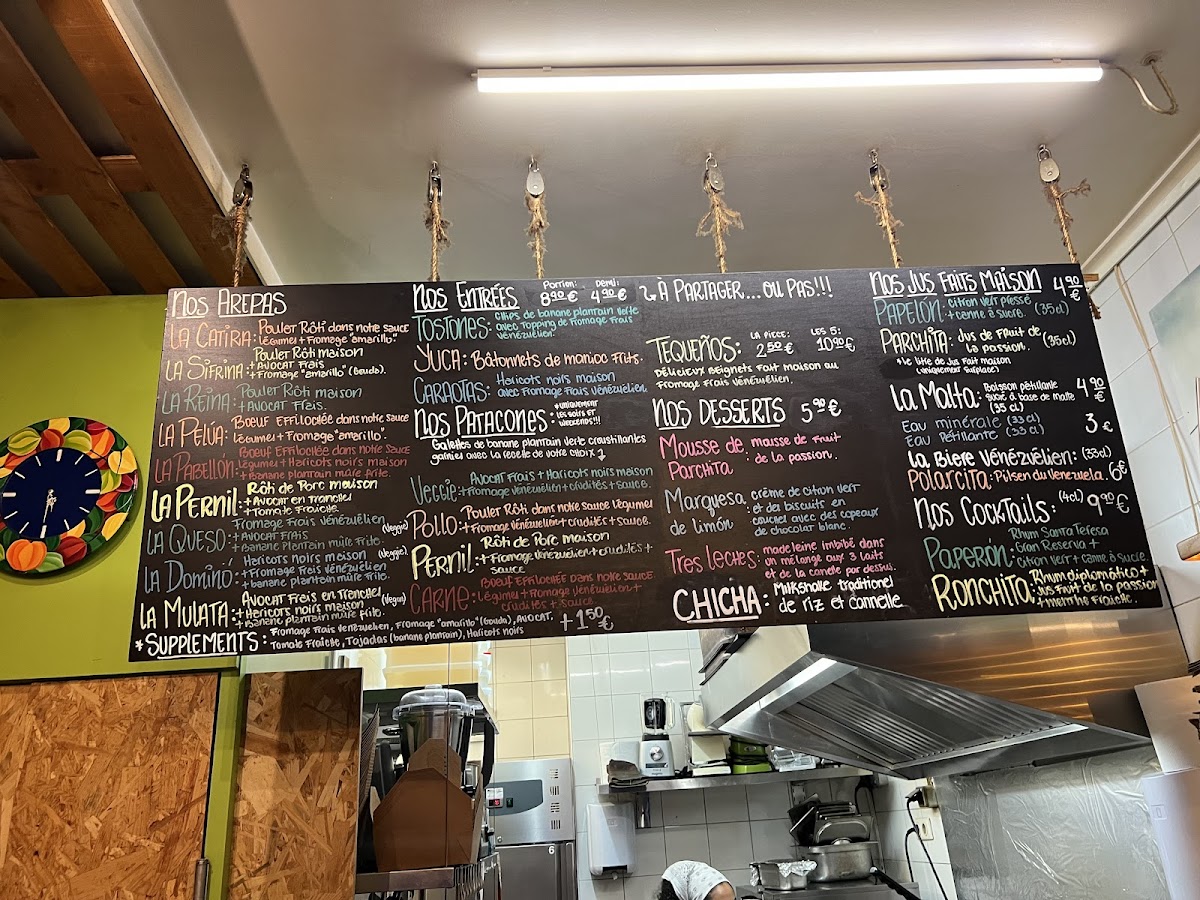 Nos Arepas
La Catira: Poulet Rôti dans notre sauce
légumes + Fromage "amarillo".
La Sifrina: Poulet Rôti maison
+ Avocat Frais
+ Fromage "amarillo" (Gouda).
La Reina: Poulet Rôti maison
+ Avocat Frais.
La Pelúa: Boeuf effilochée dans notre sauce
légumes + Fromage "amarillo".
La Pabellon: Boeuf Effilochée dans notre sauce
légumes + Haricots noirs maison
+ Banane plantain mûre frite.
La Pernil: Rôti de Porc maison
+ Avocat en tranches
+ Tomate Fraîche.
La Queso: Fromage Frais Vénézuélien (Veggie)
+ Avocat Frais
+ Banane plantain mûre frite.
La Dominó: Haricots noirs maison (Veggie)
+ Fromage Frais Vénézuélien
+ Banane plantain mûre frite.
La Mulata: Avocat Frais en tranches (Vegan)
+ Haricots noirs maison
+ Banane plantain mûre frite.
* Supplements: Fromage Frais Venezuelien, Fromage "amarillo" (Gouda), Avocat, +1.50€
Tomate Fraîche, Tajadas (banane plantain), Haricots noirs
Nos Entrées Portion: 8.90€ Demi: 4.90€
Tostones: Chips de banane plantain verte
avec topping de Fromage Frais
Vénézuélien.
Yuca: Bâtonnets de manioc frits.
Caraotas: Haricots noirs maison
avec Fromage Frais Vénézuélien.
Nos Patacones *uniquement
les soirs et
weekends!!!
Galettes de banane plantain verte croustillantes
garnies avec la recette de votre choix
Veggie: Avocat Frais + Haricots noirs maison
+ Fromage Vénézuélien + crudités + sauce.
Pollo: Poulet Rôti dans notre sauce légumes
+ Fromage Vénézuélien + crudités + sauce.
Pernil: Rôti de Porc maison
+ Fromage Vénézuélien + crudités +
sauce
Carne: Boeuf Effilochée dans notre sauce
légumes + Fromage Vénézuélien +
crudités + sauce
À Partager... ou Pas!!!
Tequeños: La pièce: 2.50€ Les 5: 10.90€
Délicieux beignets fait maison au
Fromage Frais Vénézuélien.
Nos Desserts 5.90€
Mousse de Parchita: mousse de fruit
de la passion.
Marquesa de limón: crème de citron vert
et des biscuits en
couches avec des copeaux
de chocolat blanc.
Tres leches: madeleine imbibé dans
un mélange aux 3 laits
et de la canelle par dessus.
Chicha: Milkshake traditionel
de riz et cannelle
Nos Jus Faits Maison 4.90€
Papelón: citron vert pressé
+ canne à sucre. (35cl)
Parchita: Jus de fruit de
la passion. (35cl)
*1 litre de Jus Fait maison
(uniquement surplace)
La Malta: Boisson pétillante
sucré à base de malte
(35 cl) 4.90€
Eau minérale (33cl)
Eau pétillante (33cl) 3€
La Biere Vénézuélien: (33cl)
Polarcita: Pilsen du Venezuela. 6€
Nos Cocktails: (40cl) 9.90€
Paperón: Rhum Santa Teresa
Gran Reserva +
citron vert + canne à sucre
Ronchita: Rhum diplomático +
Jus Fruit de la passion
+ menthe fraîche.